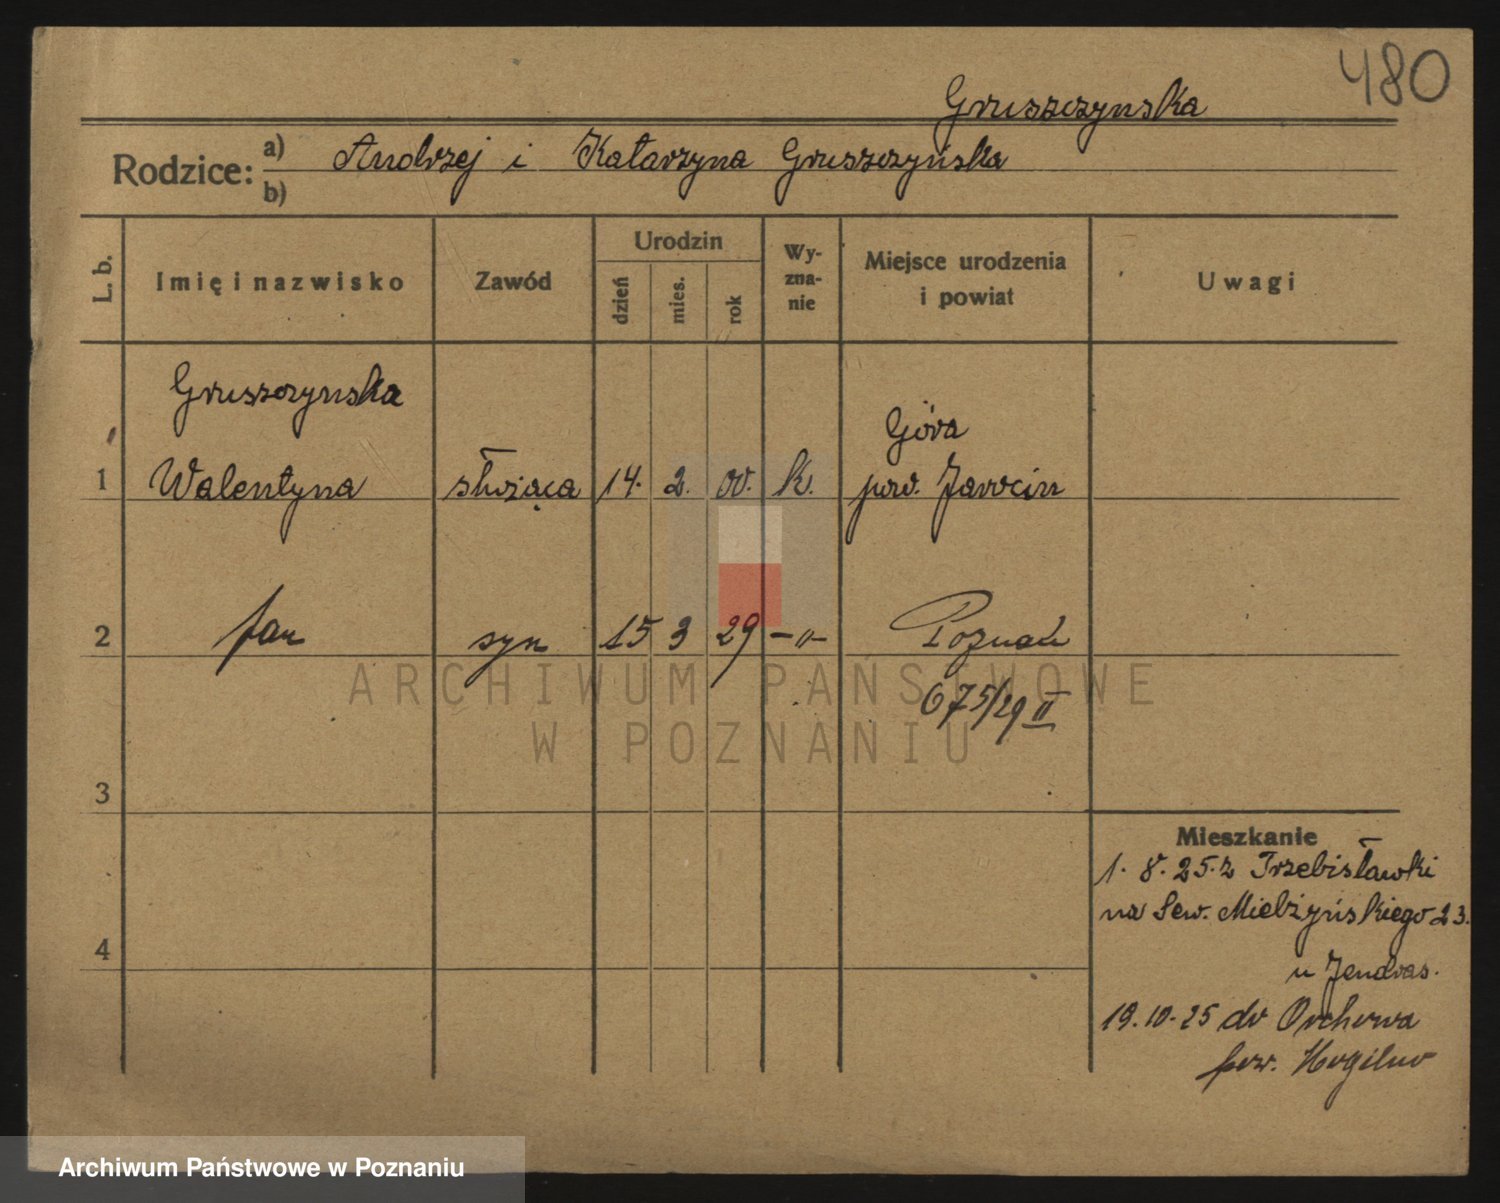 480
Gruszczynska
Rodzice: a) Andrzej i Katarzyna Gruszczyńska
b)
L. b. Imię i nazwisko Zawód Urodzin dzień mies. rok Wy-zna-nie Miejsce urodzenia i powiat Uwagi
Gruszczynska Góra
1 Walentyna służąca 14. 2. 00. k. pow. Jarocin
2 Jan syn 15 3 29 -"- Poznań
675/29 II
3
Mieszkanie
1. 8. 25. z Trzebisławki
na Sew. Mielżyńskiego 23.
4
u Jendras.
19. 10. 25 do Orchowa
pow. Mogilno
ARCHIWUM PAŃSTWOWE
W POZNANIU
Archiwum Państwowe w Poznaniu